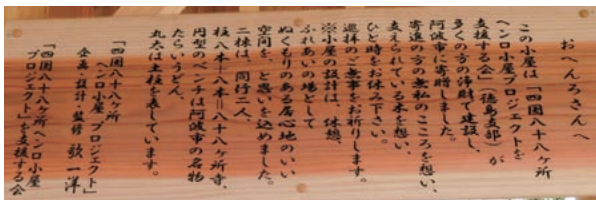 おへんろさんへ
この小屋は「四国八十八ヶ所
ヘンロ小屋プロジェクトを
支援する会」（徳島支部）が
多くの方の浄財で建設し、
阿波市に寄贈しました。
寄進の方の無私のこころを想い、
支えられている木を想い、
ひと時をお休み下さい。
巡拝のご無事をお祈りします。
※小屋の設計は、休憩、
ふれあいの場として
ぬくもりのある居心地のいい
空間を、と思いを込めました。
二棟は、同行二人、
柱八本・八本＝八十八ヶ所寺、
円型のベンチは阿波市の名物
たらいうどん、
丸太は大柱を表しています。
「四国八十八ヶ所
ヘンロ小屋プロジェクト」
企画・設計・監修 歌一洋
「四国八十八ヶ所ヘンロ小屋
プロジェクト」を支援する会